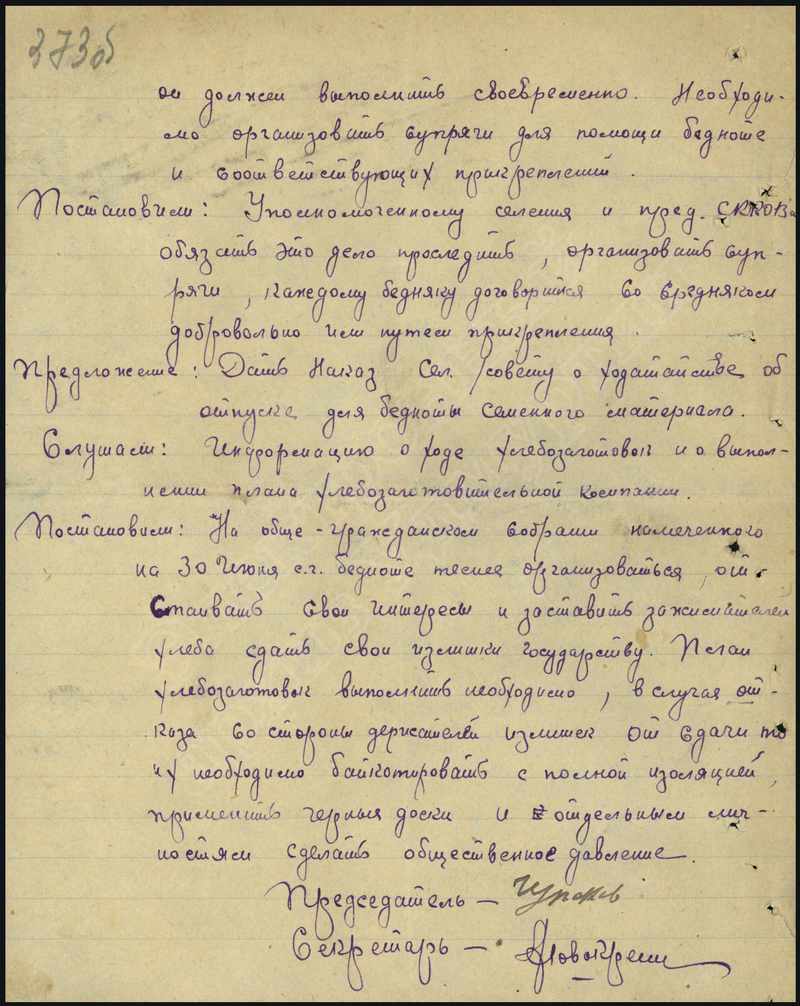 373об
он должен выполнить своевременно. Необходи-
мо организовать супряги для помощи бедноте
и соответствующих прикреплений.
Постановили: Уполномоченному селения и пред. СККОВа
обязать это дело проследить, организовать суп-
ряги, каждому бедняку договорится со средняком
добровольно или путем прикрепления.
Предложение: Дать Наказ Сел./совету о ходатайстве об
отпуске для бедноты семенного материала.
Слушали: Информацию о ходе хлебозаготовок и о выпол-
нении плана хлебозаготовительной компании.
Постановили: На обще-гражданском собрании намеченного
на 30 Июня с.г. бедноте теснее организоваться, от-
стаивать свои интересы и заставить зажимателей
хлеба сдать свои излишки государству. План
хлебозаготовок выполнить необходимо, в случая от-
каза со стороны держателей излишек от сдачи то
их необходимо байкотировать с полной изоляцией,
применить черныя доски и отдельным лич-
ностям сделать общественное давление.
Председатель —
Секретарь —